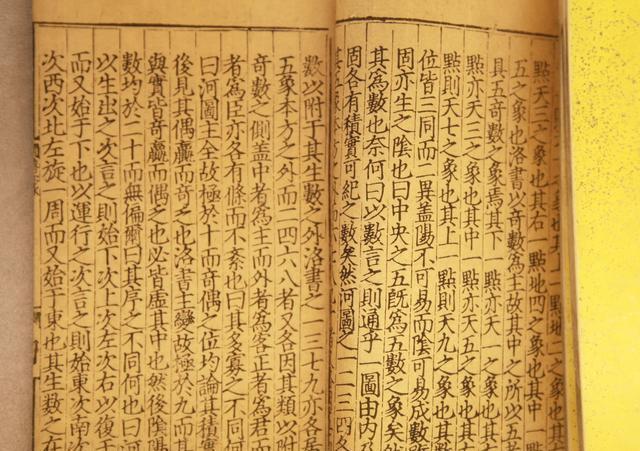 點天三之象也其右一點地四之象也其中一點
五之象也洛書以奇數為主故其中之所以五者
具五奇數之象焉其下一點亦天一之象也其
點亦天三之象也其中一點亦天五之象也其
點則天七之象也其上一點則天九之象也其
位皆三同而二異蓋陽不可易而陰可易成數
固亦生之陰也曰中央之五既爲五數之象矣然
其爲數也奈何曰以數言之則通乎一圖由内及
固各有積實可紀之數矣然河圖之一二三四各
數以附于其生數之外洛書之一三七九亦各居
五象本方之外而二四六八者又各因其類以附
奇數之側蓋中者爲主而外者爲客正者爲君而
者爲臣亦各有條而不紊也曰其多寡之不同何
曰河圖主全故極於十而奇偶之位均論其積實
後見其偶贏而奇乏也洛書主變故極於九而其
與實皆奇贏而偶乏也必皆虛其中也然後陰陽
數均於二十而無偏爾曰其序之不同何也曰河
以生出之次言之則始下次上次左次右以復于
而又始于下也以運行之次言之則始東次南次
次西次北左旋一周而又始于東也其生數之在